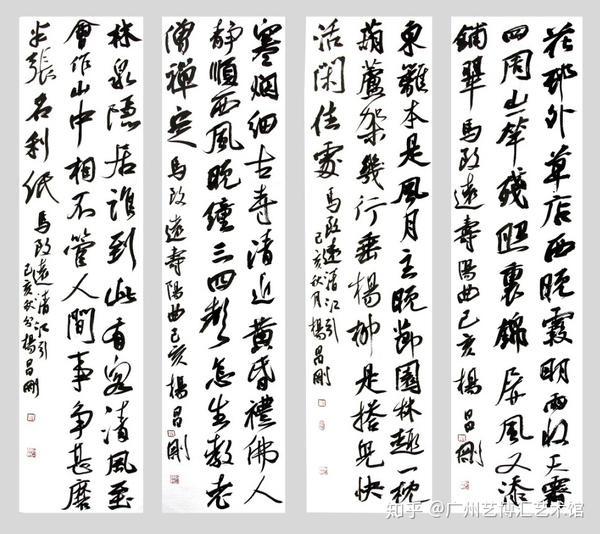 花邨外草店西晚霞明雨收天霽
四周山一竿殘照裏錦屏風又添
鋪翠 馬致遠壽陽曲己亥楊昌剛
東籬本是風月主晚節園林趣一枕
葫蘆架幾行垂楊柳是搭兒快
活閑住處 馬致遠清江引
己亥秋月楊昌剛
寒烟細古寺清近黃昏禮佛人
靜順西風晚鐘三四聲怎生教老
僧禪定 馬致遠壽陽曲己亥楊昌剛
林泉隱居誰到此有客清風至
會作山中相不管人間事爭甚麼
半張名利紙 馬致遠清江引
己亥秋分楊昌剛
知乎 @广州艺博汇艺术馆